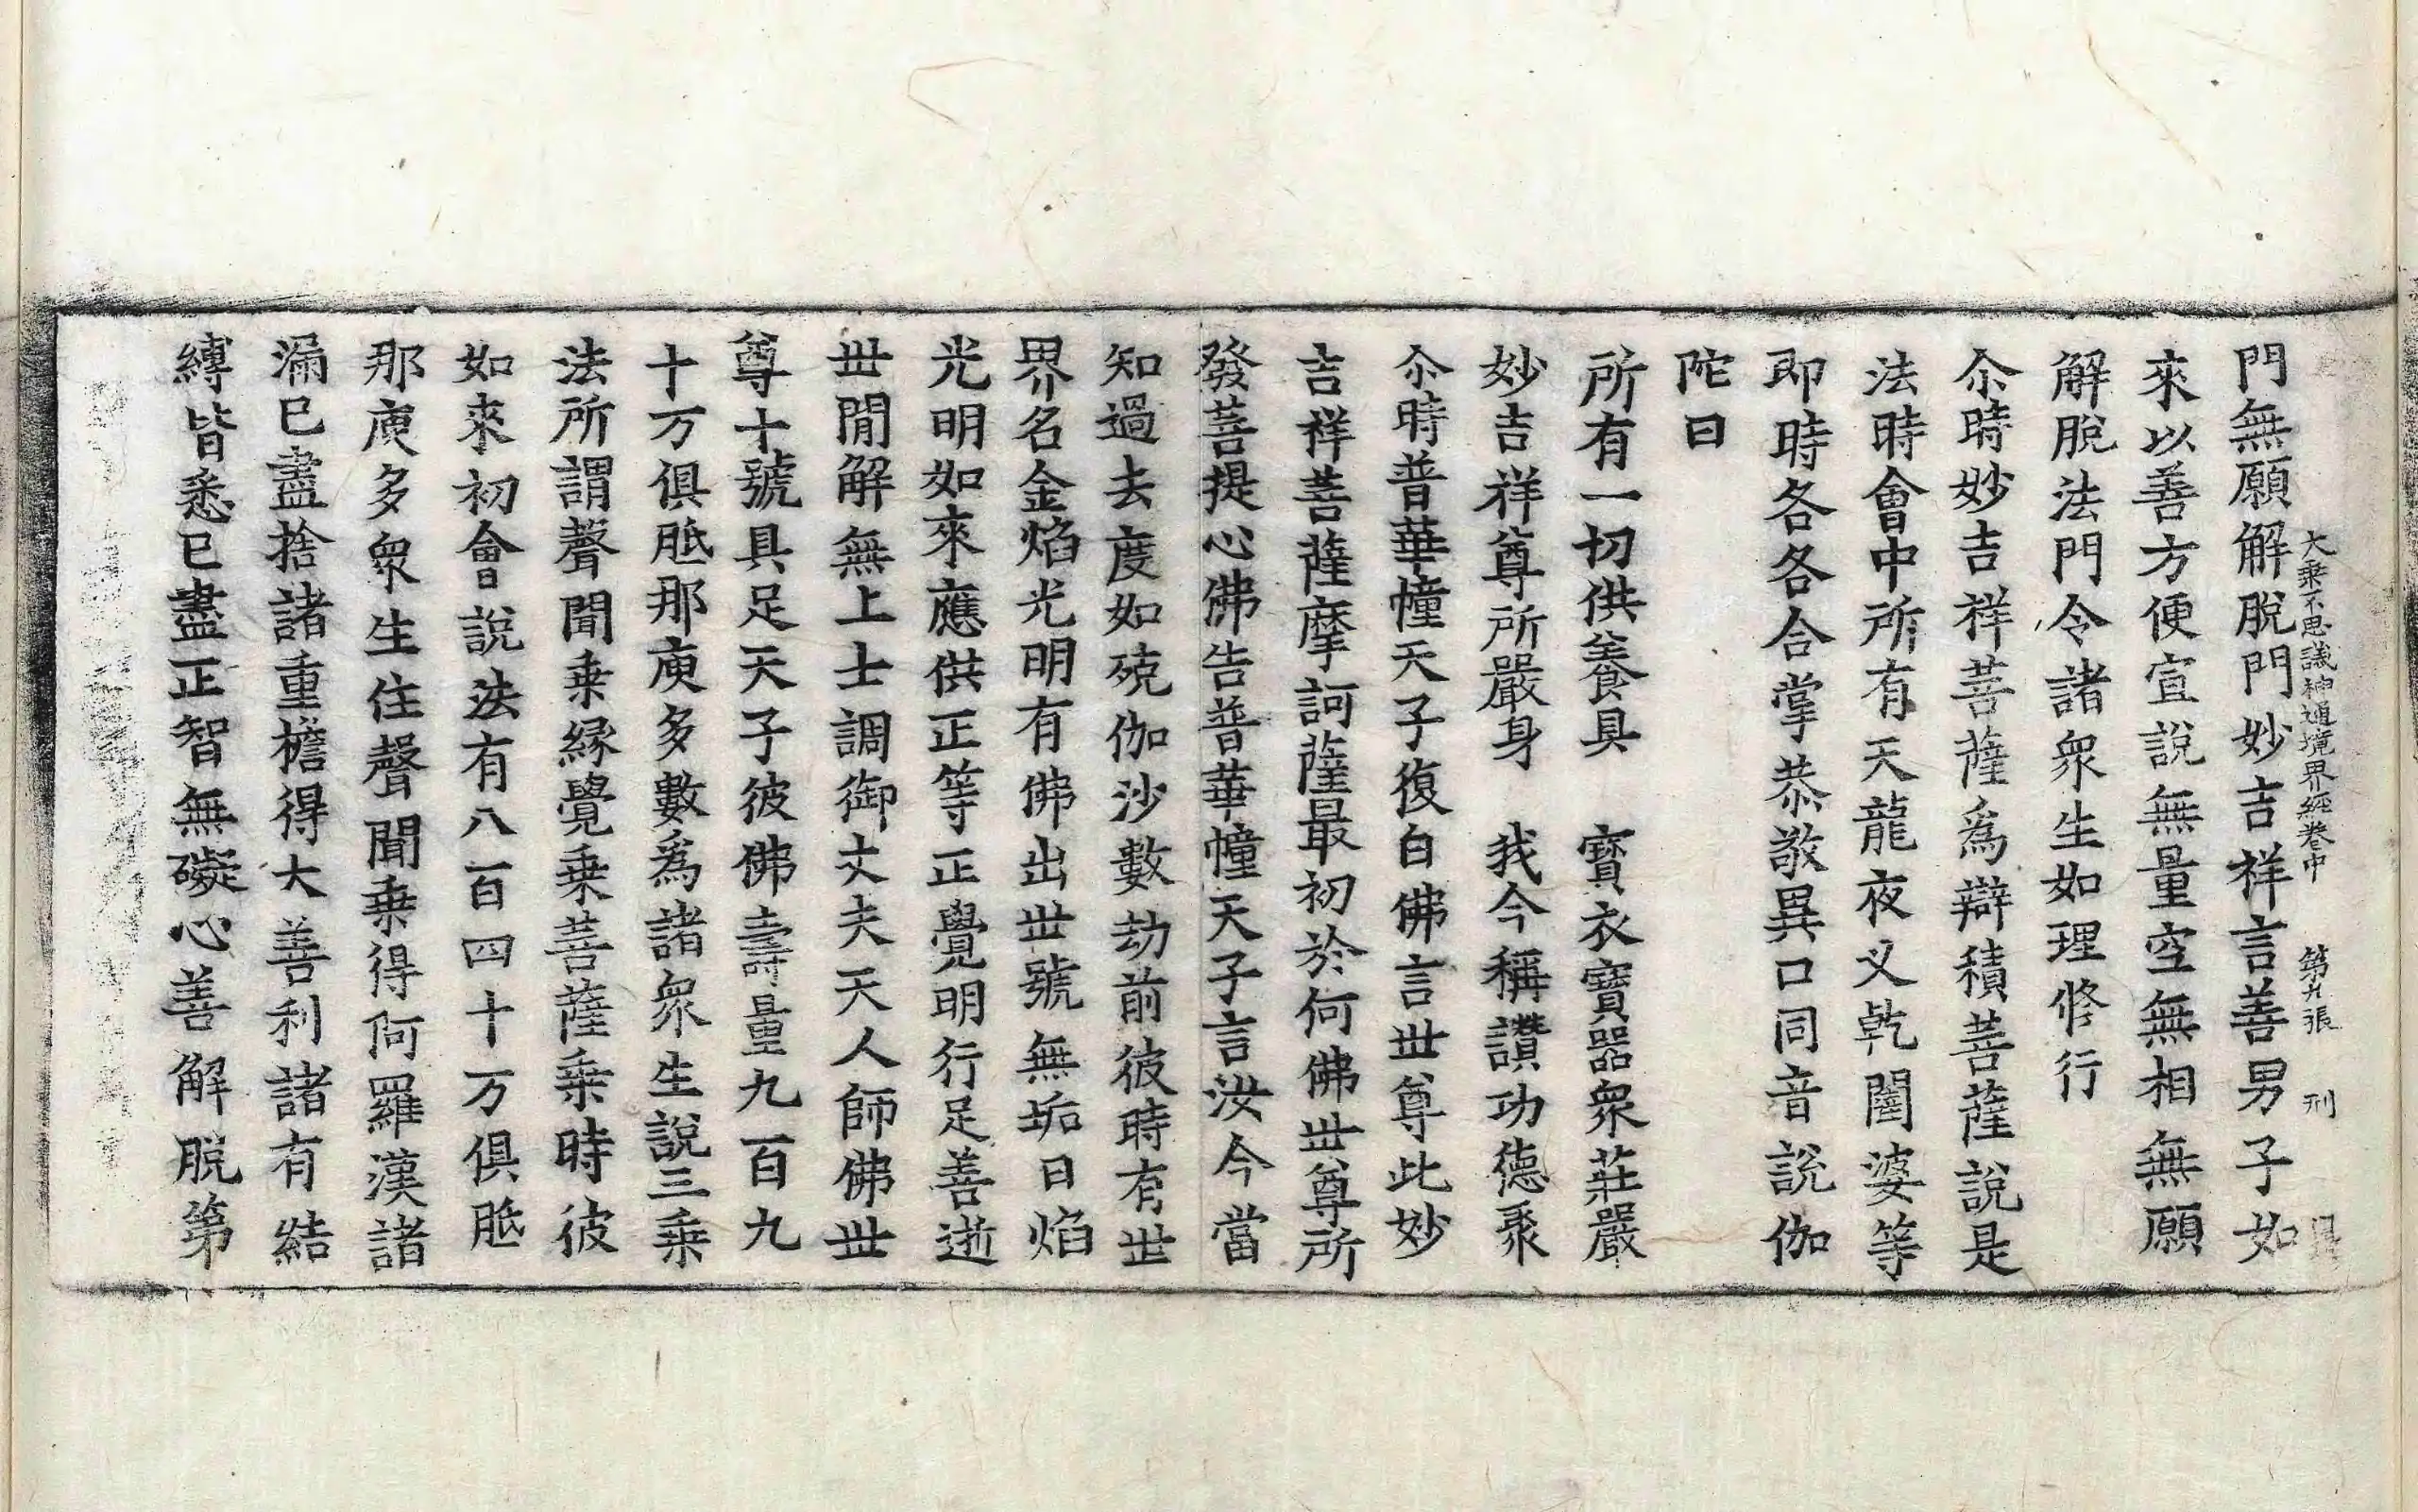 大乘不思議神通境界經卷中 第九張 刑
門無願解脫門妙吉祥言善男子如
來以善方便宣說無量空無相無願
解脫法門令諸衆生如理修行
尒時妙吉祥菩薩爲辯積菩薩說是
法時會中所有天龍夜义乾闥婆等
即時各各合掌恭敬異口同音說伽
陀曰
所有一切供養具 寶衣寶器衆莊嚴
妙吉祥尊所嚴身 我今稱讚功德聚
尒時普華幢天子復白佛言世尊此妙
吉祥菩薩摩訶薩最初於何佛世尊所
發菩提心佛告普華幢天子言汝今當
知過去度如殑伽沙數劫前彼時有世
界名金焰光明有佛出世號無垢日焰
光明如來應供正等正覺明行足善逝
世閒解無上士調御丈夫天人師佛世
尊十號具足天子彼佛壽量九百九
十万俱胝那庾多數爲諸衆生說三乗
法所謂聲聞乗緣覺乗菩薩乗時彼
如來初會說法有八百四十万俱胝
那庾多衆生住聲聞乗得阿羅漢諸
漏已盡捨諸重擔得大善利諸有結
縛皆悉已盡正智無礙心善解脫第